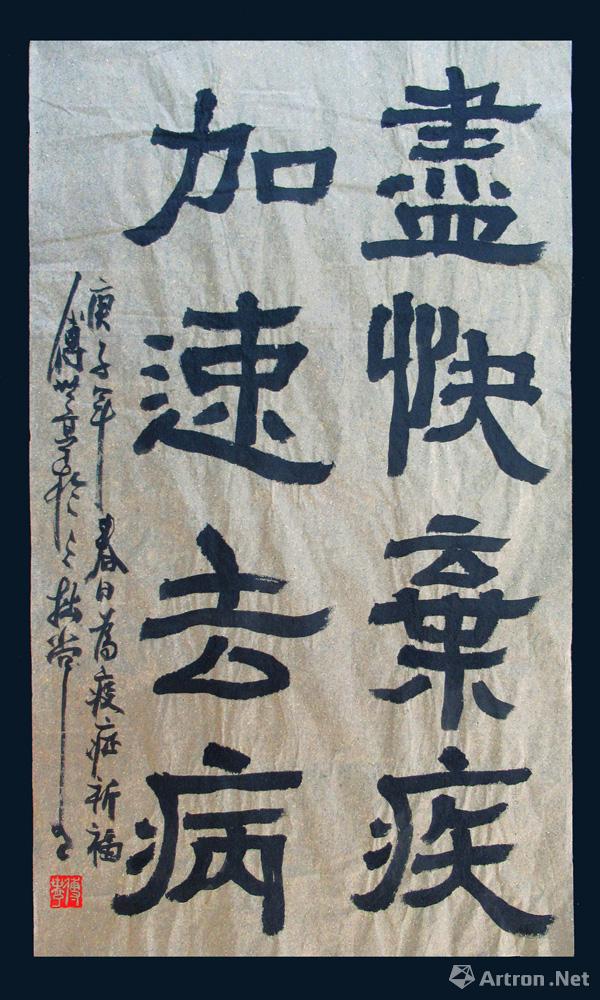 盡快棄疾
加速去病
庚子年春日為疫症祈福
傅
Artron.Net